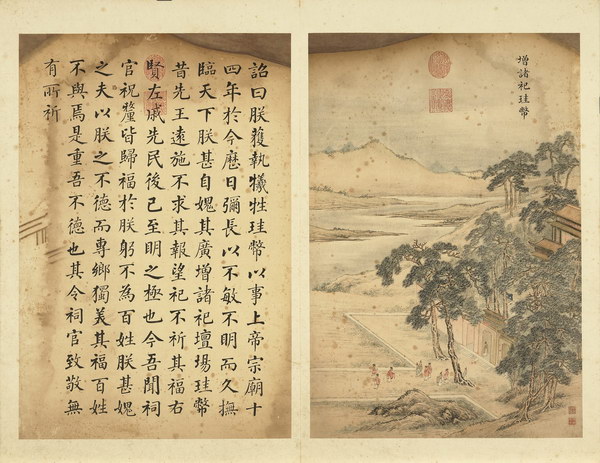 增諸祀珪幣
詔曰朕獲執犧牲珪幣以事上帝宗廟十
四年於今歷日彌長以不敏不明而久撫
臨天下朕甚自媿其廣增諸祀壇場珪幣
昔先王遠施不求其報望祀不祈其福右
賢左戚先民後己至明之極也今吾聞祠
官祝釐皆歸福於朕躬不為百姓朕甚媿
之夫以朕之不德而專鄉獨美其福百姓
不與焉是重吾不德也其令祠官致敬無
有所祈